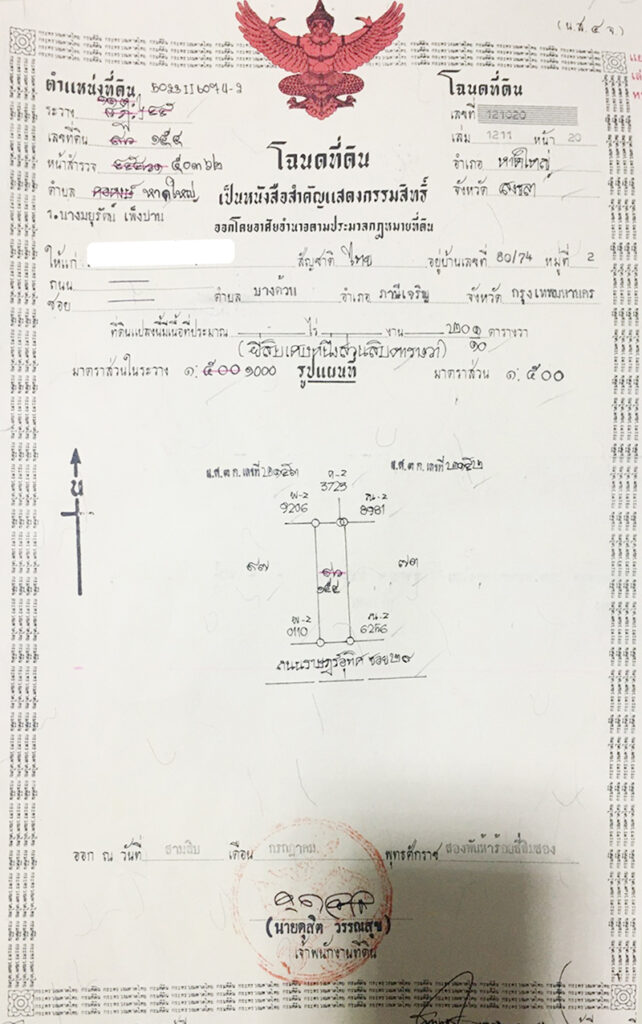 (น.ส.๔ จ.)
ตำแหน่งที่ดิน
ระวาง
เลขที่ดิน ๑๕๔
หน้าสำรวจ ๕๐๓๖๒
ตำบล หาดใหญ่
โฉนดที่ดิน
เลขที่ 121020
เล่ม 1211 หน้า 20
อำเภอ หาดใหญ่
จังหวัด สงขลา
โฉนดที่ดิน
เป็นหนังสือสำคัญแสดงกรรมสิทธิ์
ออกโดยอาศัยอำนาจตามประมวลกฎหมายที่ดิน
๑. นางมยุรัตน์ เพ็งปาน
ให้แก่ สัญชาติ ไทย อยู่บ้านเลขที่ 80/74 หมู่ที่ 2
ถนน
ซอย ตำบล บางด้วน อำเภอ ภาษีเจริญ จังหวัด กรุงเทพมหานคร
ที่ดินแปลงนี้มีเนื้อที่ประมาณ - ไร่ - งาน ตารางวา
มาตราส่วนในระวาง ๑: ๕๐๐ ๑๐๐๐ รูปแผนที่ มาตราส่วน ๑: ๕๐๐
น
ห-2
3723
พ-2
9206
8981
๘๗
๑๕๔
๗๓
พ-2
0110
6256
ถนนราษฎร์อุทิศ ซอย๒๙
ออก ณ วันที่ สามสิบ เดือน กรกฎาคม พุทธศักราช สองพันห้าร้อยสี่สิบสอง
(นายดุสิต วรรณสุข)
เจ้าพนักงานที่ดิน